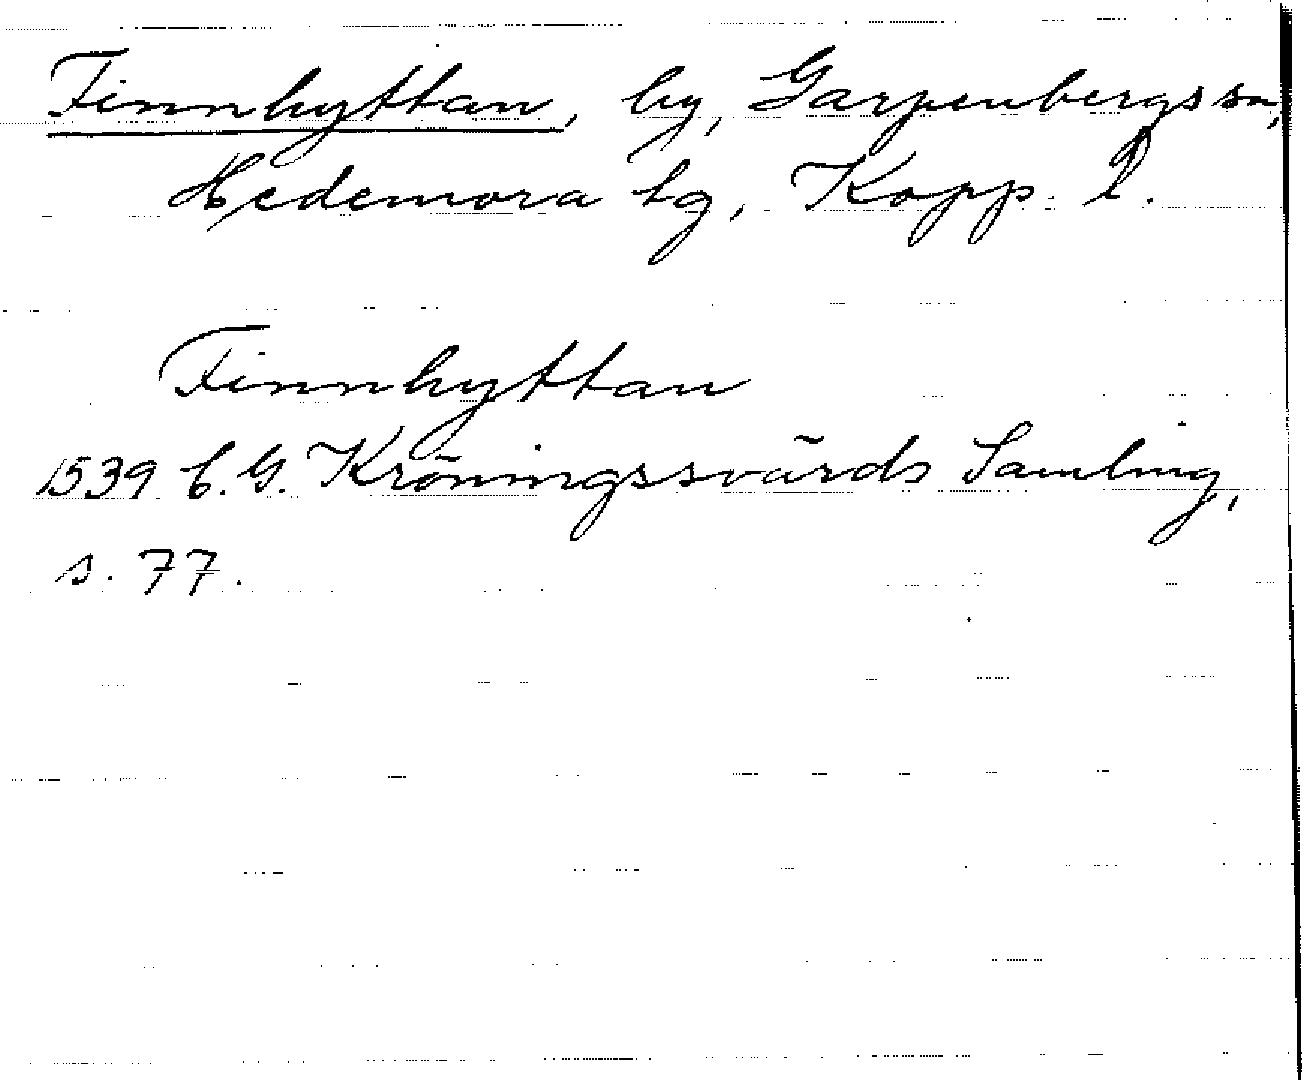 Finnhyttan, by, Garpenbergs sn,
Hedemora tg, Kopp. l.
Finnhyttan
1539 C. G. Kröningssvärds Samling,
s. 77.